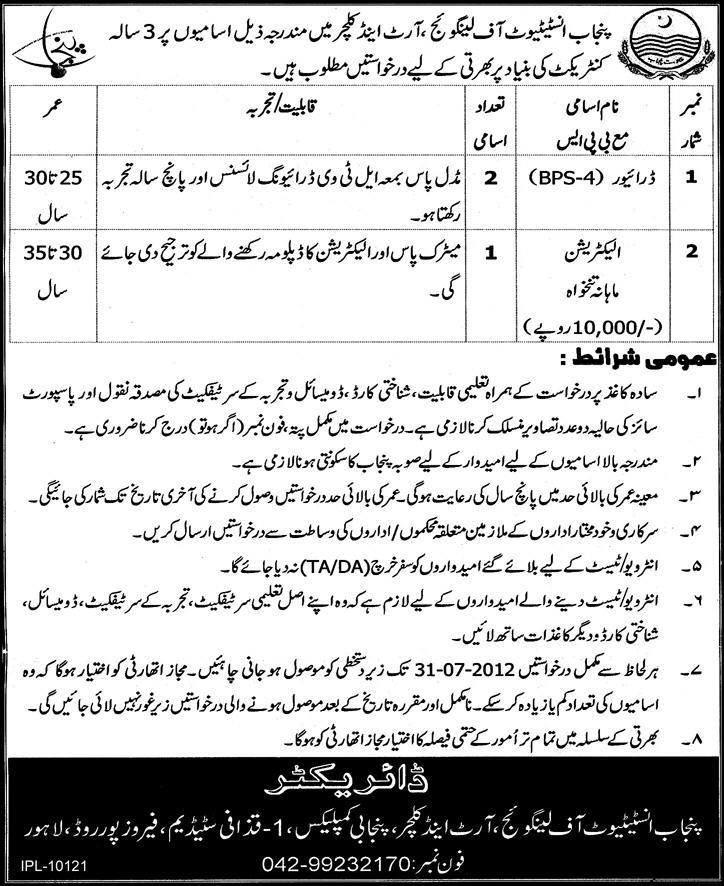 پنجاب انسٹیٹیوٹ آف لینگوئج، آرٹ اینڈ کلچر میں مندرجہ ذیل اسامیوں پر 3 سالہ
کنٹریکٹ کی بنیاد پر بھرتی کے لیے درخواستیں مطلوب ہیں۔
نمبر شمار	نام اسامی مع بی پی ایس	تعداد اسامی	قابلیت/تجربہ	عمر
1	ڈرائیور (BPS-4)	2	مڈل پاس بمعہ ایل ٹی وی ڈرائیونگ لائسنس اور پانچ سالہ تجربہ رکھتا ہو۔	25 تا 30 سال
2	الیکٹریشن ماہانہ تنخواہ (10,000/- روپے)	1	میٹرک پاس اور الیکٹریشن کا ڈپلومہ رکھنے والے کو ترجیح دی جائے گی۔	30 تا 35 سال
عمومی شرائط :
۱۔ سادہ کاغذ پر درخواست کے ہمراہ تعلیمی قابلیت، شناختی کارڈ، ڈومیسائل و تجربہ کے سرٹیفکیٹ کی مصدقہ نقول اور پاسپورٹ
سائز کی حالیہ دو عدد تصاویر منسلک کرنا لازمی ہے۔ درخواست میں مکمل پتہ، فون نمبر (اگر ہو تو) درج کرنا ضروری ہے۔
۲۔ مندرجہ بالا اسامیوں کے لیے امیدوار کے لیے صوبہ پنجاب کا سکونتی ہونا لازمی ہے۔
۳۔ معینہ عمر کی بالائی حد میں پانچ سال کی رعایت ہوگی۔ عمر کی بالائی حد درخواستیں وصول کرنے کی آخری تاریخ تک شمار کی جائیگی۔
۴۔ سرکاری و خود مختار اداروں کے ملازمین متعلقہ محکموں/اداروں کی وساطت سے درخواستیں ارسال کریں۔
۵۔ انٹرویو/ٹیسٹ کے لیے بلائے گئے امیدواروں کو سفر خرچ (TA/DA) نہ دیا جائے گا۔
۶۔ انٹرویو/ٹیسٹ دینے والے امیدواروں کے لیے لازم ہے کہ وہ اپنے اصل تعلیمی سرٹیفکیٹ، تجربہ کے سرٹیفکیٹ، ڈومیسائل،
شناختی کارڈ و دیگر کاغذات ساتھ لائیں۔
۷۔ ہر لحاظ سے مکمل درخواستیں 31-07-2012 تک زیر دستخطی کو موصول ہو جانی چاہئیں۔ مجاز اتھارٹی کو اختیار ہوگا کہ وہ
اسامیوں کی تعداد کم یا زیادہ کر سکے۔ نامکمل اور مقررہ تاریخ کے بعد موصول ہونے والی درخواستیں زیر غور نہیں لائی جائیں گی۔
۸۔ بھرتی کے سلسلہ میں تمام تر اُمور کے حتمی فیصلہ کا اختیار مجاز اتھارٹی کو ہوگا۔
ڈائریکٹر
پنجاب انسٹیٹیوٹ آف لینگوئج، آرٹ اینڈ کلچر، پنجابی کمپلیکس، 1- قذافی سٹیڈیم، فیروز پور روڈ، لاہور
فون نمبر: 042-99232170
IPL-10121